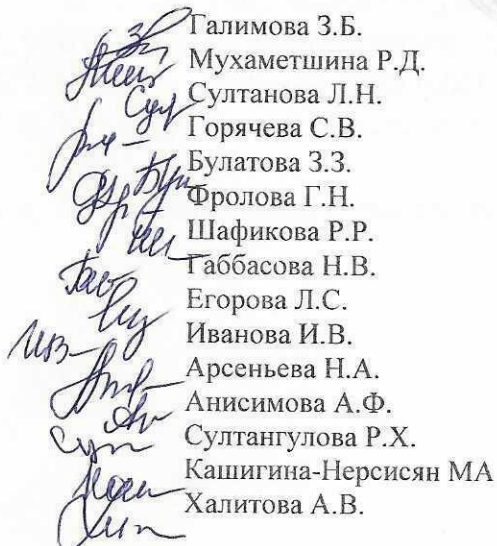 Галимова З.Б.
Мухаметшина Р.Д.
Султанова Л.Н.
Горячева С.В.
Булатова З.З.
Фролова Г.Н.
Шафикова Р.Р.
Габбасова Н.В.
Егорова Л.С.
Иванова И.В.
Арсеньева Н.А.
Анисимова А.Ф.
Султангулова Р.Х.
Кашигина-Нерсисян МА
Халитова А.В.